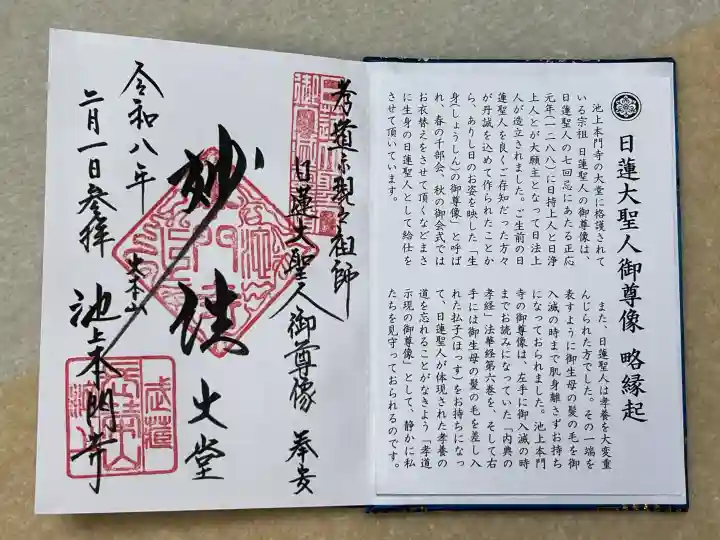 日蓮大聖人御尊像 略縁起
池上本門寺の大堂に格護されて
いる宗祖 日蓮聖人の御尊像は、
日蓮聖人の七回忌にあたる正応
元年(一二八八)に日持上人と日浄
上人とが大願主となって日法上
人が造立されました。ご生前の日
蓮聖人を良くご存知だった方々
が丹誠を込めて作られたことか
ら、ありし日のお姿を映した「生
身(しょうしん)の御尊像」と呼ば
れ、春の千部会、秋の御会式では
お衣替えをさせて頂くなどまさ
に生身の日蓮聖人として給仕を
させて頂いています。
また、日蓮聖人は孝養を大変重
んじられた方でした。その一端を
表すように御生母の髪の毛を御
入滅の時まで肌身離さずお持ち
になっておられました。池上本門
寺の御尊像は、左手に御入滅の時
までお読みになっていた「内典の
孝経」法華経第六巻を、そして右
手には御生母の髪の毛を差し入
れた払子(ほっす)をお持ちになっ
て、日蓮聖人が体現された孝養の
道を忘れることがなきよう「孝道
示現の御尊像」として、静かに私
たちを見守っておられるのです。
孝道示現の祖師
日蓮大聖人御尊像 奉安
妙法 大堂
大本山
池上本門寺
令和八年
二月一日参拝